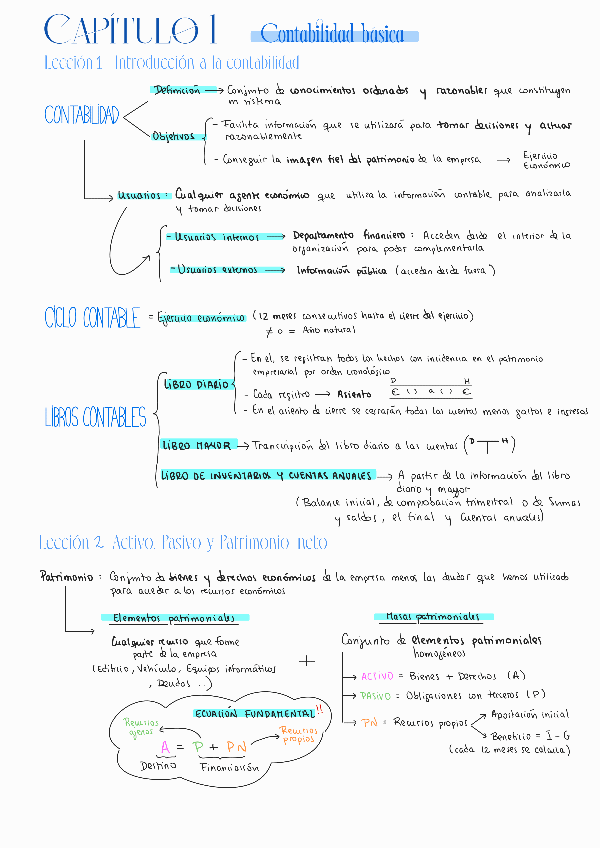 CAPÍTULO 1 Contabilidad basica
Lección 1 Introducción a la contabilidad
CONTABILIDAD
Definición → Conjunto de conocimientos ordenados y razonables que constituyen
un sistema
Objetivos
- Facilita información que se utilizará para tomar decisiones y actuar
razonablemente
- Conseguir la imagen fiel del patrimonio de la empresa → Ejercicio
Económico
Usuarios: Cualquier agente económico que utiliza la información contable para analizarla
y tomar decisiones
- Usuarios internos → Departamento financiero: Acceden desde el interior de la
organización para poder complementarla
- Usuarios externos → Información pública (acceden desde fuera)
CICLO CONTABLE = Ejercicio económico (12 meses consecutivos hasta el cierre del ejercicio)
≠ o = Año natural
LIBROS CONTABLES
LIBRO DIARIO
- En el, se registran todos los hechos con incidencia en el patrimonio
empresarial por orden cronológico
- Cada registro → Asiento D H
€ ( ) a ( ) €
- En el asiento de cierre se cerrarán todas las cuentas menos gastos e ingresos
LIBRO MAYOR → Transcripción del libro diario a las cuentas (D H)
LIBRO DE INVENTARIOS Y CUENTAS ANUALES → A partir de la información del libro
diario y mayor
(Balance inicial, de comprobación trimestral o de Sumas
y saldos, el final y Cuentas anuales)
Lección 2 Activo, Pasivo y Patrimonio neto
Patrimonio: Conjunto de bienes y derechos económicos de la empresa menos las deudas que hemos utilizado
para acceder a los recursos económicos
Elementos patrimoniales
Cualquier recurso que forme
parte de la empresa
(Edificio, Vehículo, Equipos informáticos
, Deudas ...)
+
Masas patrimoniales
Conjunto de elementos patrimoniales
homogéneos
→ ACTIVO = Bienes + Derechos (A)
→ PASIVO = Obligaciones con terceros (P)
→ PN = Recursos propios
Aportación inicial
Beneficio = I - G
(cada 12 meses se calcula)
ECUACIÓN FUNDAMENTAL!!
Recursos
ajenos
Recursos
propios
A = P + PN
Destino Financiación